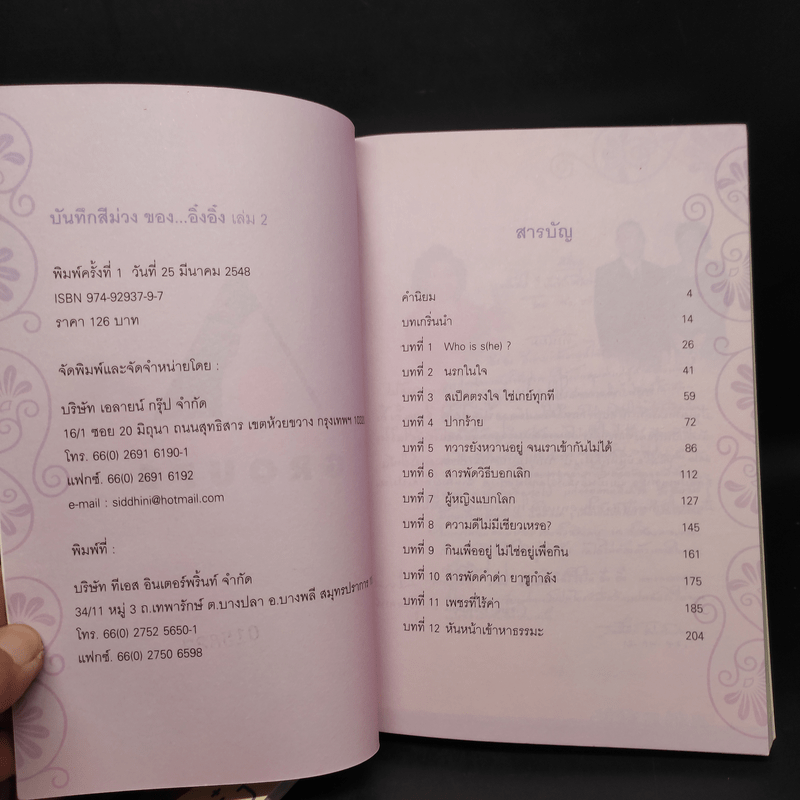 บันทึกสีม่วง ของ...อิ๊งอิ๊ง เล่ม 2
พิมพ์ครั้งที่ 1 วันที่ 25 มีนาคม 2548
ISBN 974-92937-9-7
ราคา 126 บาท
จัดพิมพ์และจัดจำหน่ายโดย :
บริษัท เอลายน์ กรุ๊ป จำกัด
16/1 ซอย 20 มิถุนา ถนนสุทธิสาร เขตห้วยขวาง กรุงเทพฯ
โทร. 66(0) 2691 6190-1
แฟกซ์. 66(0) 2691 6192
e-mail : siddhini@hotmail.com
พิมพ์ที่ :
บริษัท ทีเอส อินเตอร์พริ้นท์ จำกัด
34/11 หมู่ 3 ถ.เทพารักษ์ ต.บางปลา อ.บางพลี สมุทรปราการ
โทร. 66(0) 2752 5650-1
แฟกซ์. 66(0) 2750 6598
สารบัญ
คำนิยม 4
บทเกริ่นนำ 14
บทที่ 1 Who is s(he) ? 26
บทที่ 2 นรกในใจ 41
บทที่ 3 สเป็คตรงใจ ใช่เกย์ทุกที 59
บทที่ 4 ปากร้าย 72
บทที่ 5 ทวารยังหวานอยู่ จนเราเข้ากันไม่ได้ 86
บทที่ 6 สารพัดวิธีบอกเลิก 112
บทที่ 7 ผู้หญิงแบกโลก 127
บทที่ 8 ความดีไม่มีเซียวเหรอ? 145
บทที่ 9 กินเพื่ออยู่ ไม่ใช่อยู่เพื่อกิน 161
บทที่ 10 สารพัดคำด่า ยาชูกำลัง 175
บทที่ 11 เพชรที่ไร้ค่า 185
บทที่ 12 หันหน้าเข้าหาธรรมะ 204